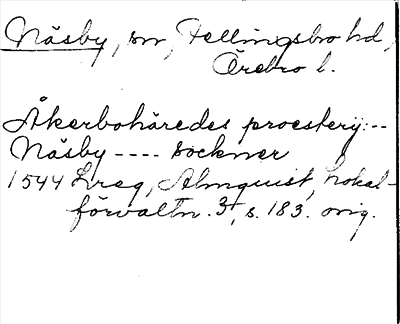 Näsby, sn, Fellingsbro hd,
Örebro l.
Åkerbohäredes proestery:--
Näsby ---- sockner
1544 Lreg, Almquist, Lokal-
förvaltn. 3, s. 183. orig.